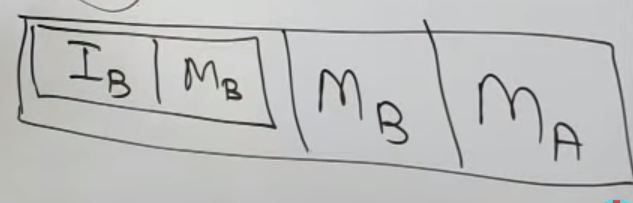 I_B | M_B | M_B | M_A